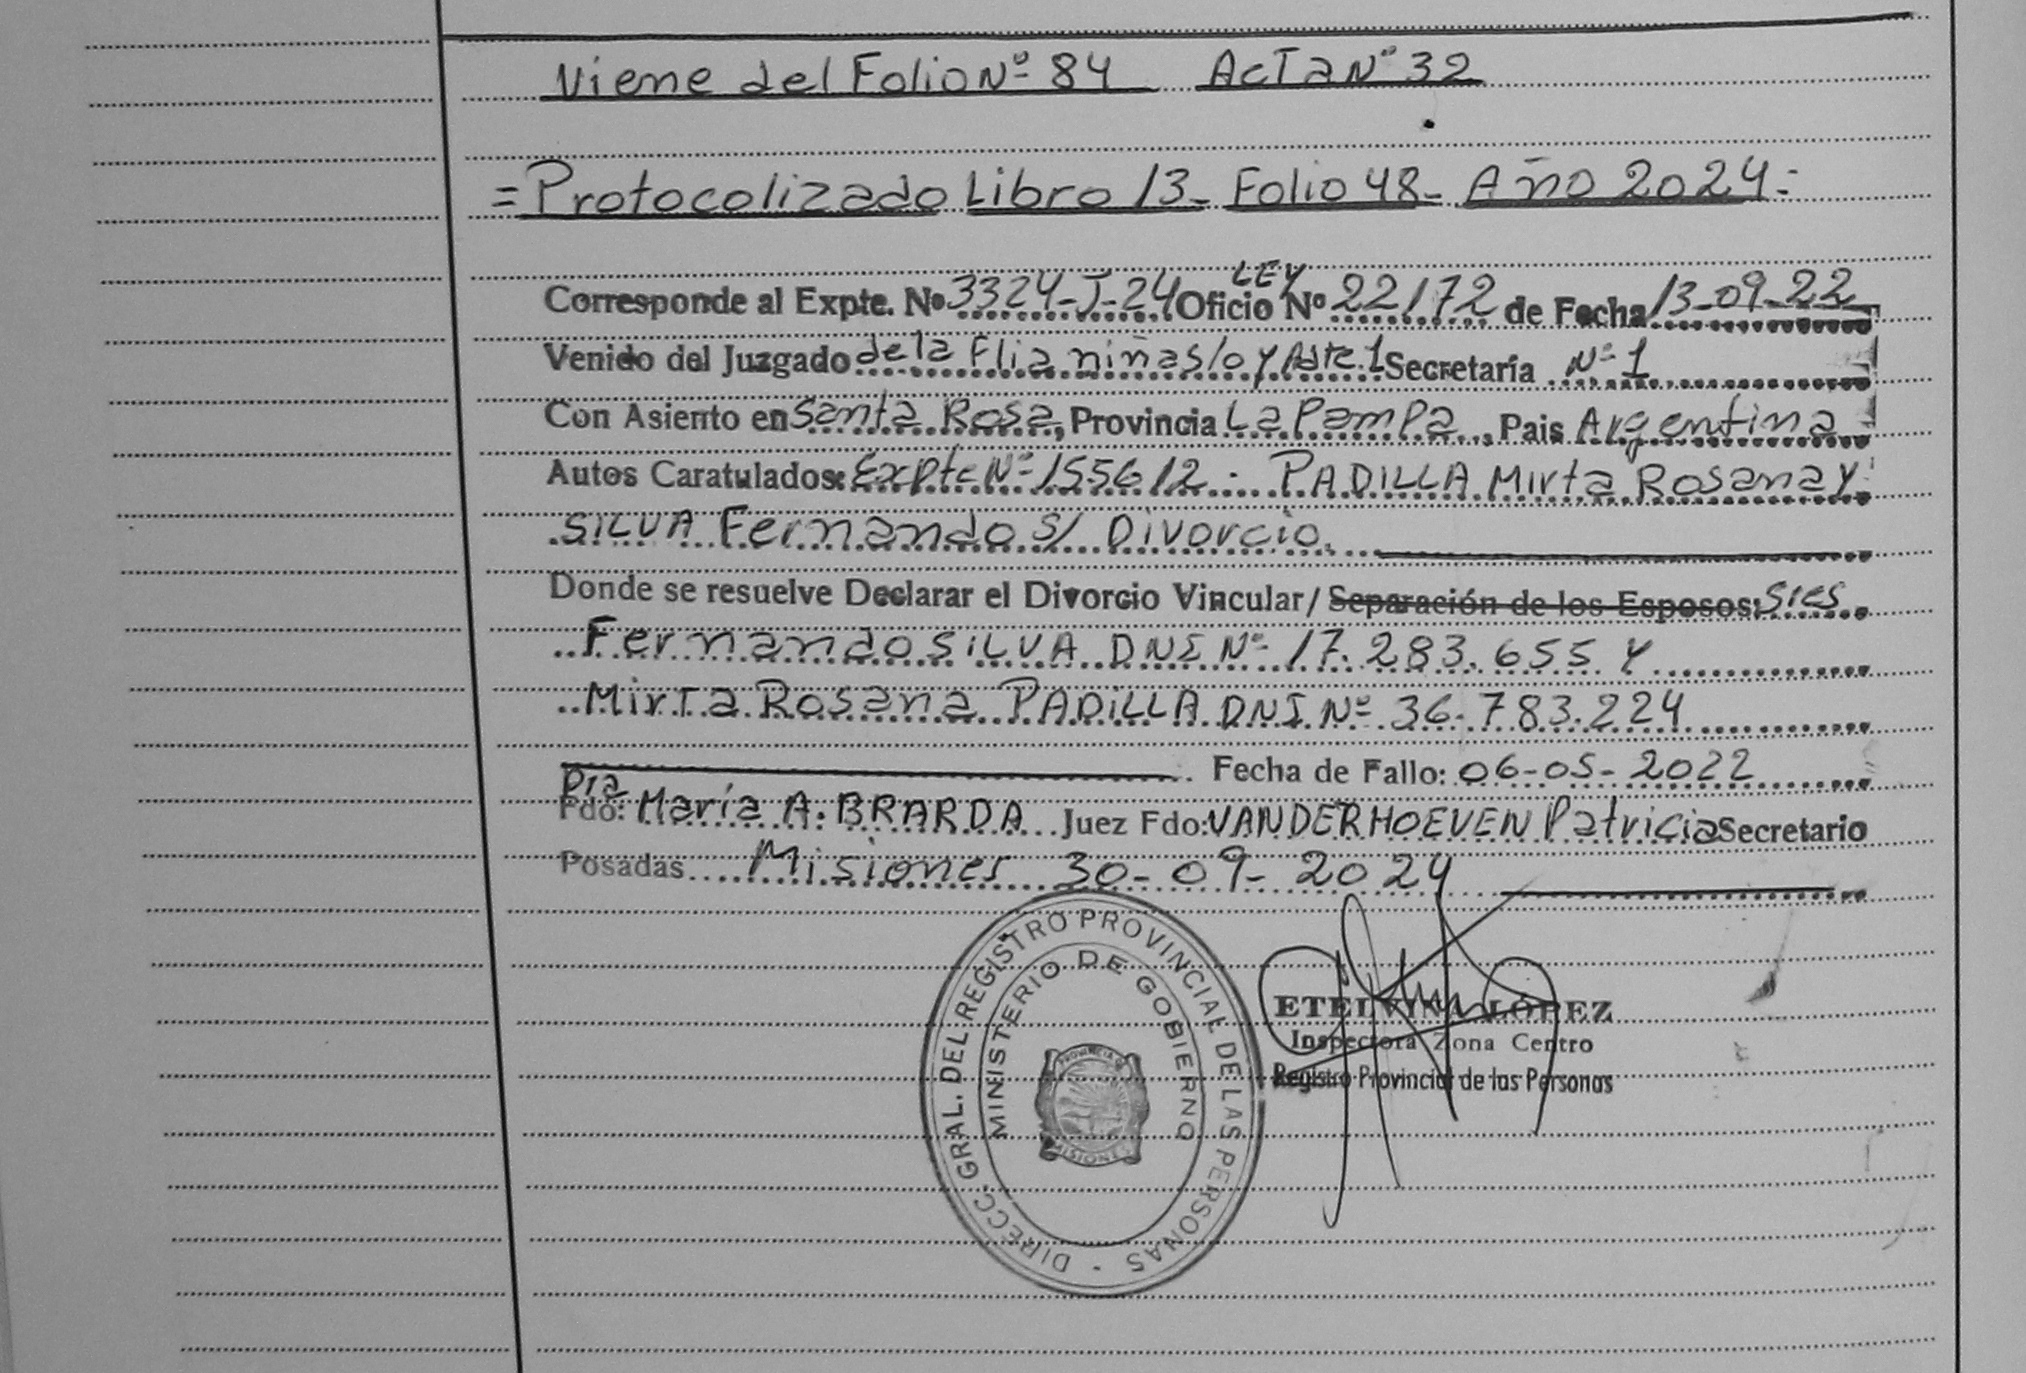 Viene del Folio Nº 84 Acta Nº 32
= Protocolizado Libro 13- Folio 48- Año 2024=
LEY
Corresponde al Expte. Nº 3324-J-24 Oficio Nº 22172 de Fecha 13-09-22
Venido del Juzgado de la Flia niñas/o y Adte. 1 Secretaría Nº 1
Con Asiento en Santa Rosa, Provincia La Pampa, Pais Argentina
Autos Caratulados: Expte Nº 155612 - PADILLA Mirta Rosana y
SILVA Fernando S/ Divorcio.
Donde se resuelve Declarar el Divorcio Vincular/ Separación de los Esposos; Sres
Fernando SILVA DNI Nº 17.283.655 y
Mirta Rosana PADILLA DNI Nº 36.783.224
Fecha de Fallo: 06-05-2022
Dra
Fdo: María A. BRARDA Juez Fdo: VANDERHOEVEN Patricia Secretario
Posadas Misiones 30-09-2024
DIRECC. GRAL. DEL REGISTRO PROVINCIAL DE LAS PERSONAS -
MINISTERIO DE GOBIERNO
PROVINCIA DE
MISIONES
ETELVINA LÓPEZ
Inspectora Zona Centro
Registro Provincial de las Personas